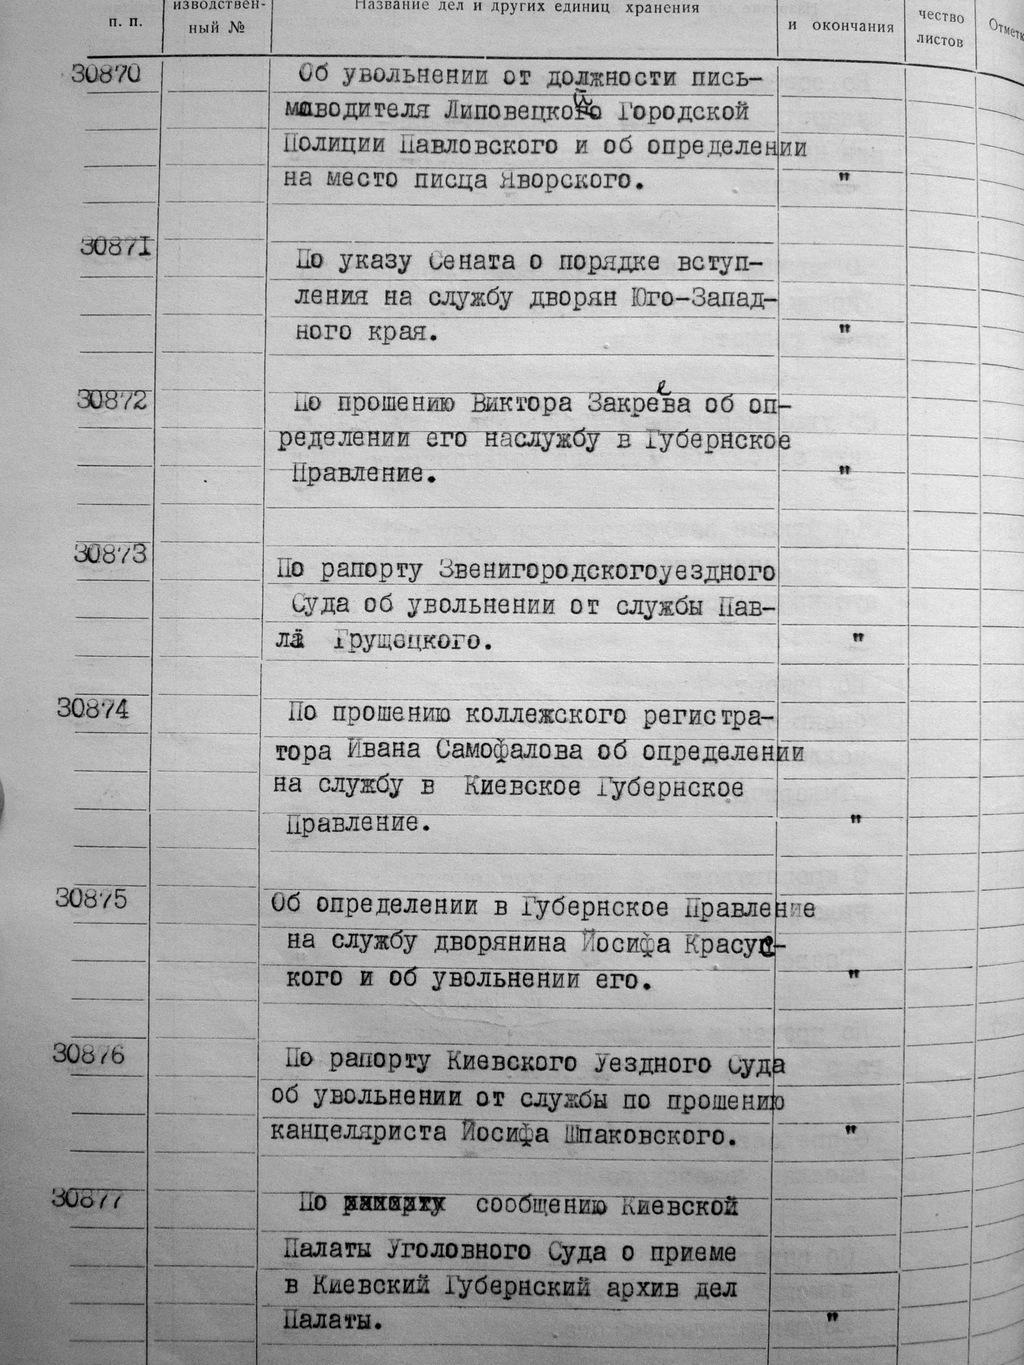 изводствен- Название дел и других единиц хранения
п. п. ный № и окончания чество листов
30870 Об увольнении от должности пись-
моводителя Липовецкой Городской
Полиции Павловского и об определении
на место писца Яворского. "
30871 По указу Сената о порядке вступ-
ления на службу дворян Юго-Запад-
ного края. "
30872 По прошению Виктора Закрева об оп-
ределении его наслужбу в Губернское
Правление. "
30873 По рапорту Звенигородскогоуездного
Суда об увольнении от службы Пав-
ла Грущецкого. "
30874 По прошению коллежского регистра-
тора Ивана Самофалова об определении
на службу в Киевское Губернское
Правление. "
30875 Об определении в Губернское Правление
на службу дворянина Иосифа Красус-
кого и об увольнении его. "
30876 По рапорту Киевского Уездного Суда
об увольнении от службы по прошению
канцеляриста Иосифа Шпаковского. "
30877 По рапорту сообщению Киевской
Палаты Уголовного Суда о приеме
в Киевский Губернский архив дел
Палаты. "